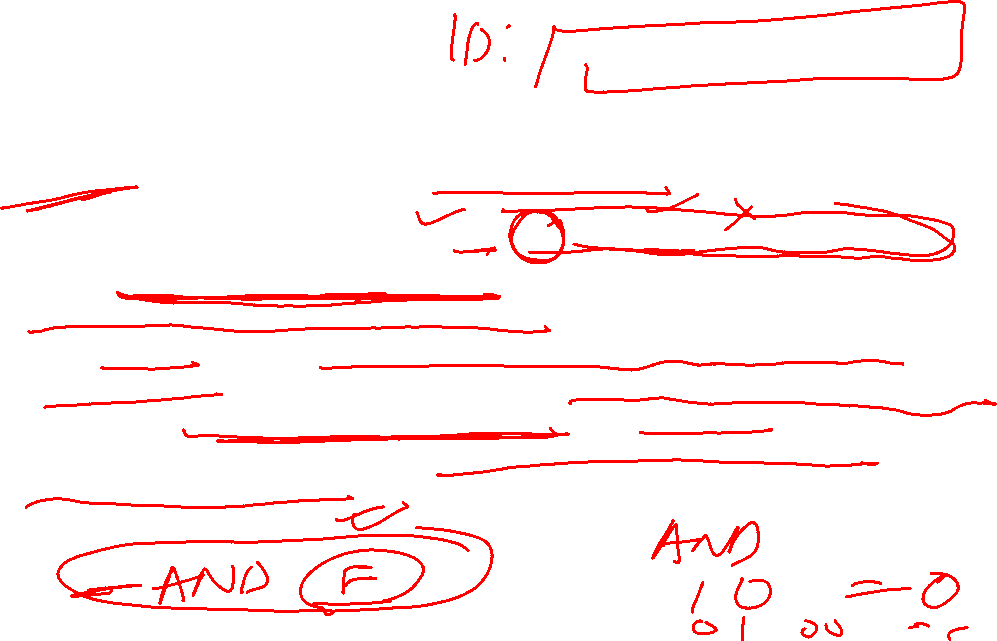 ID:
AND F
AND
10 = 0
01 00